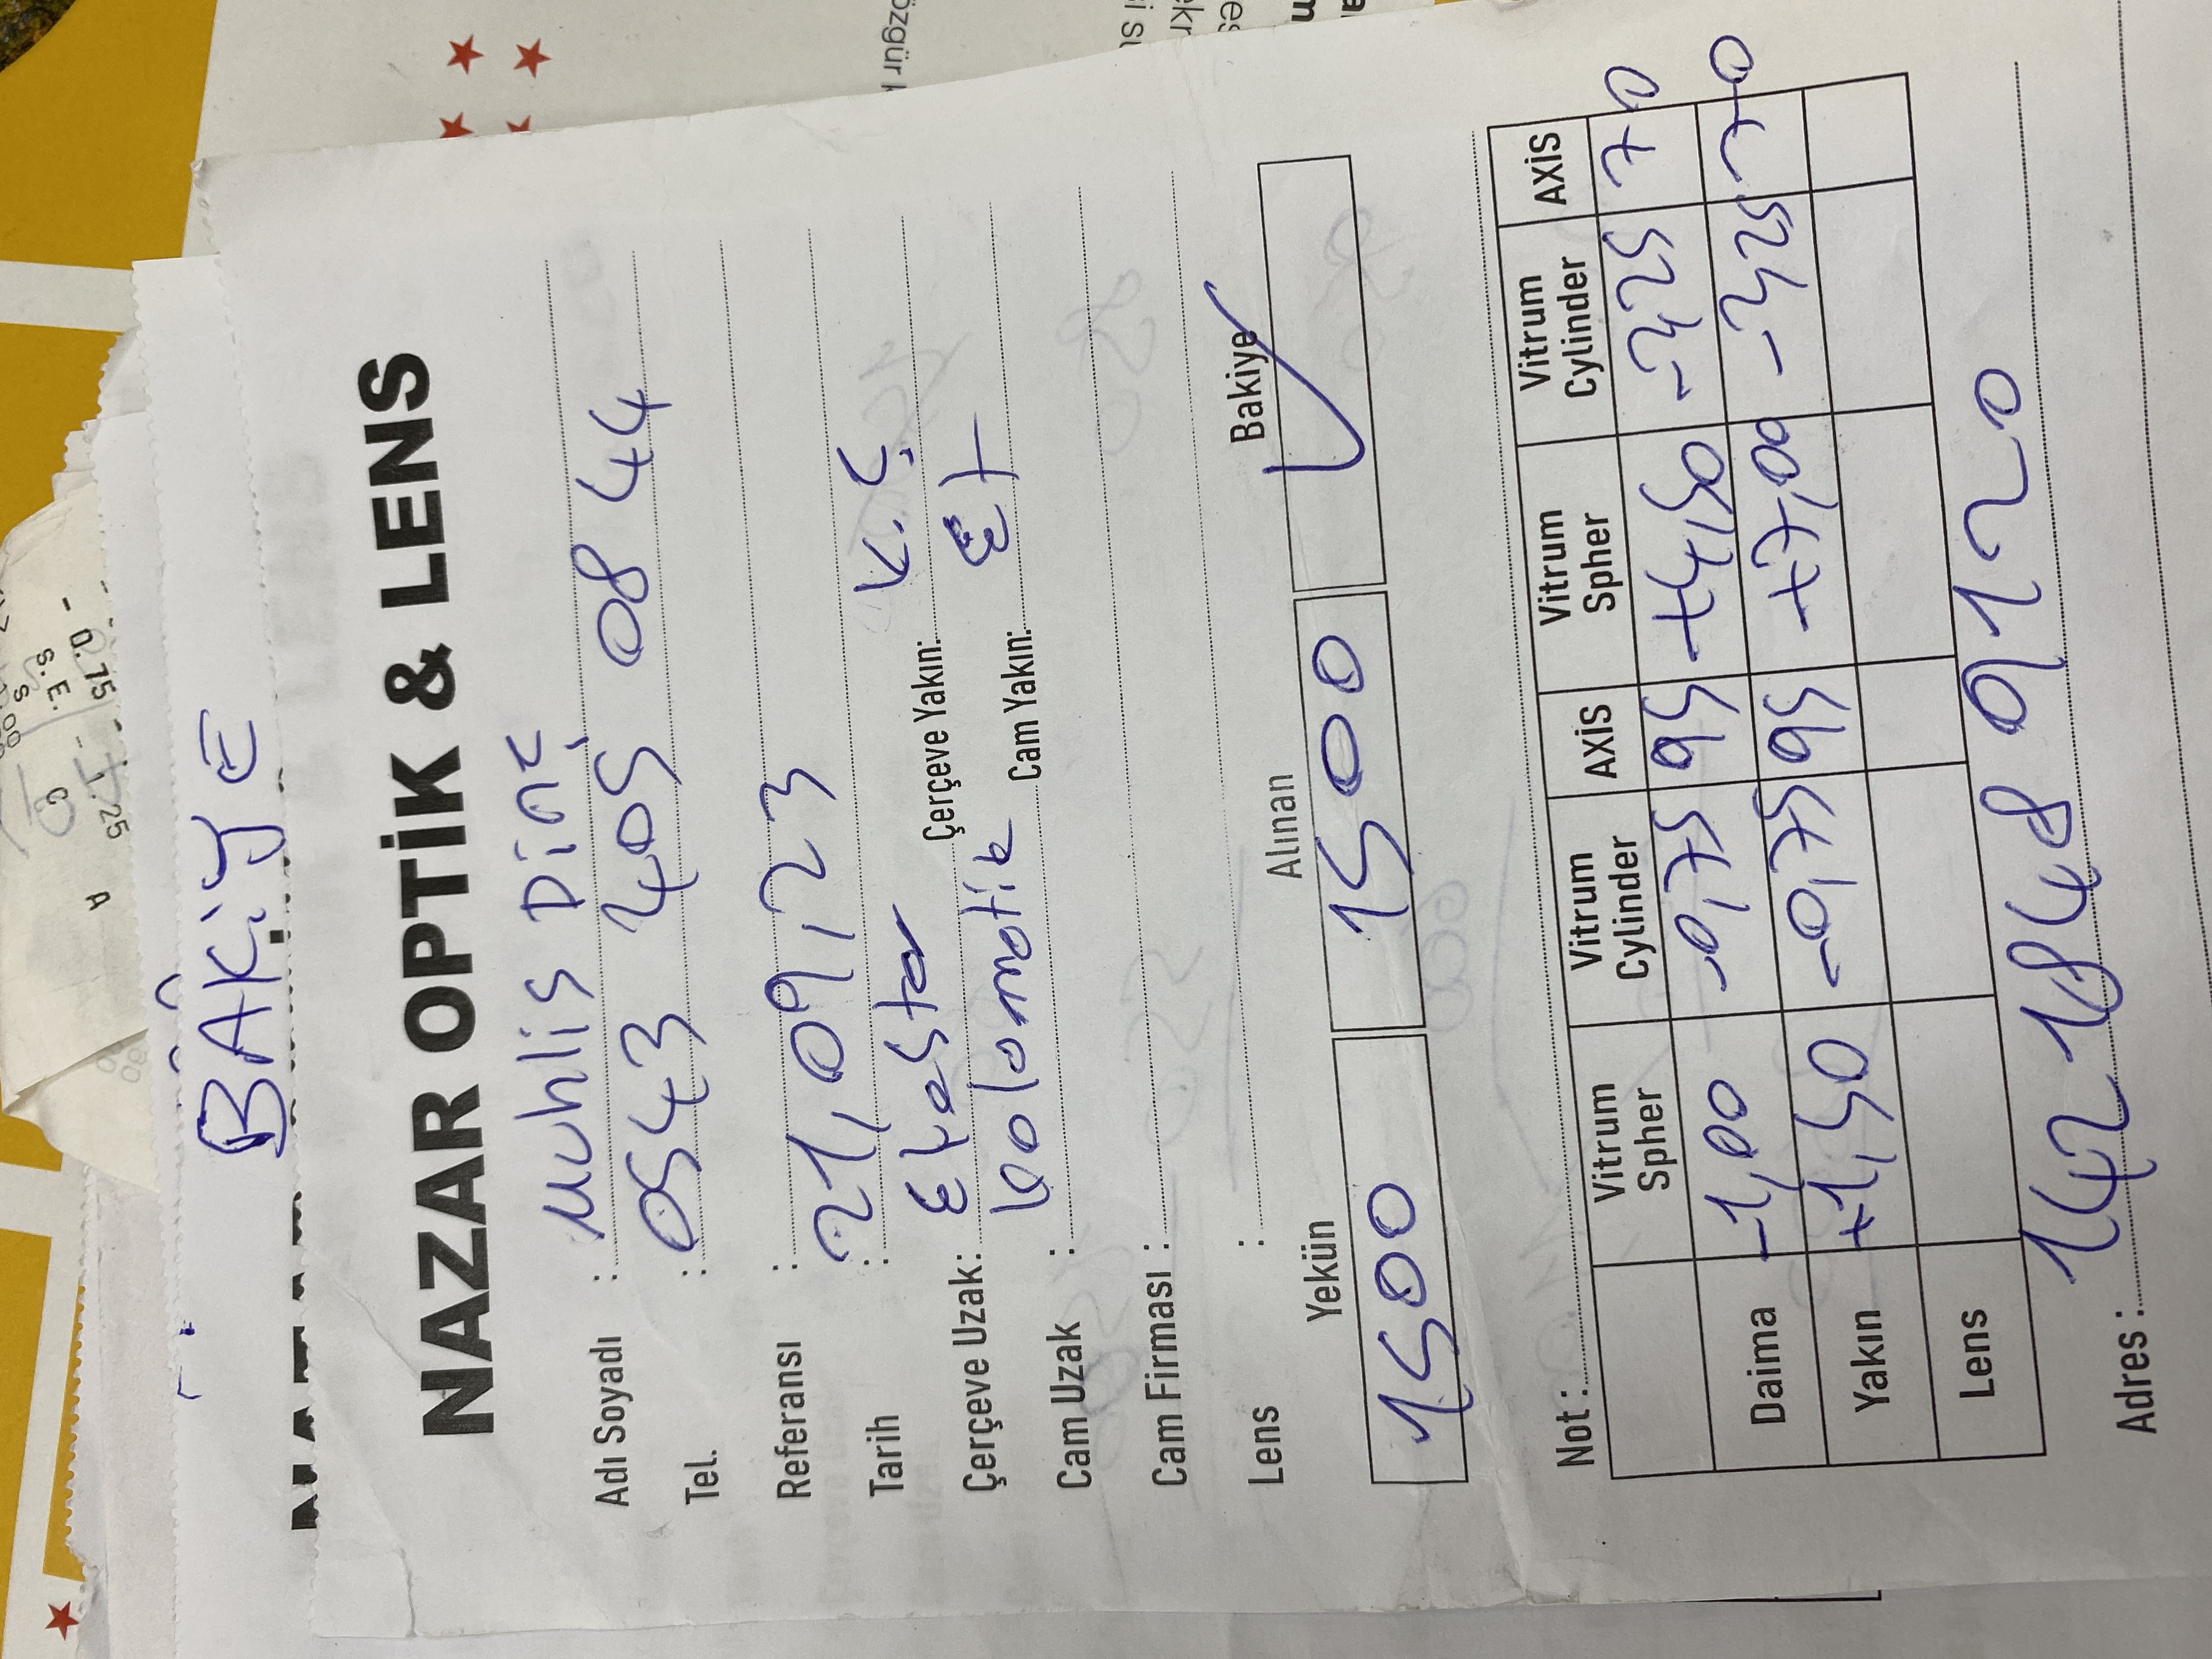 S
00
S.E.
C
- 0.75
- 1.25
A
BAKİYE
NAZAR OPTİK & LENS
Adı Soyadı : Muhlis Dinç
Tel. : 0543 405 08 44
Referansı :
Tarih : 21,09,23
Çerçeve Uzak: Ekastar Çerçeve Yakın: K.Ç
Cam Uzak : Kolomatik Cam Yakın: Ek
Cam Firması :
Lens :
Yekün Alınan Bakiye
1500 1500 ✓
Not :
Vitrum Spher Vitrum Cylinder AXİS Vitrum Spher Vitrum Cylinder AXİS
Daima -1,00 -0,75 95 +4,50 -2,25 70
Yakın +1,50 -0,75 95 +7,00 -2,25 70
Lens
Adres : 142 1848 9120
özgür